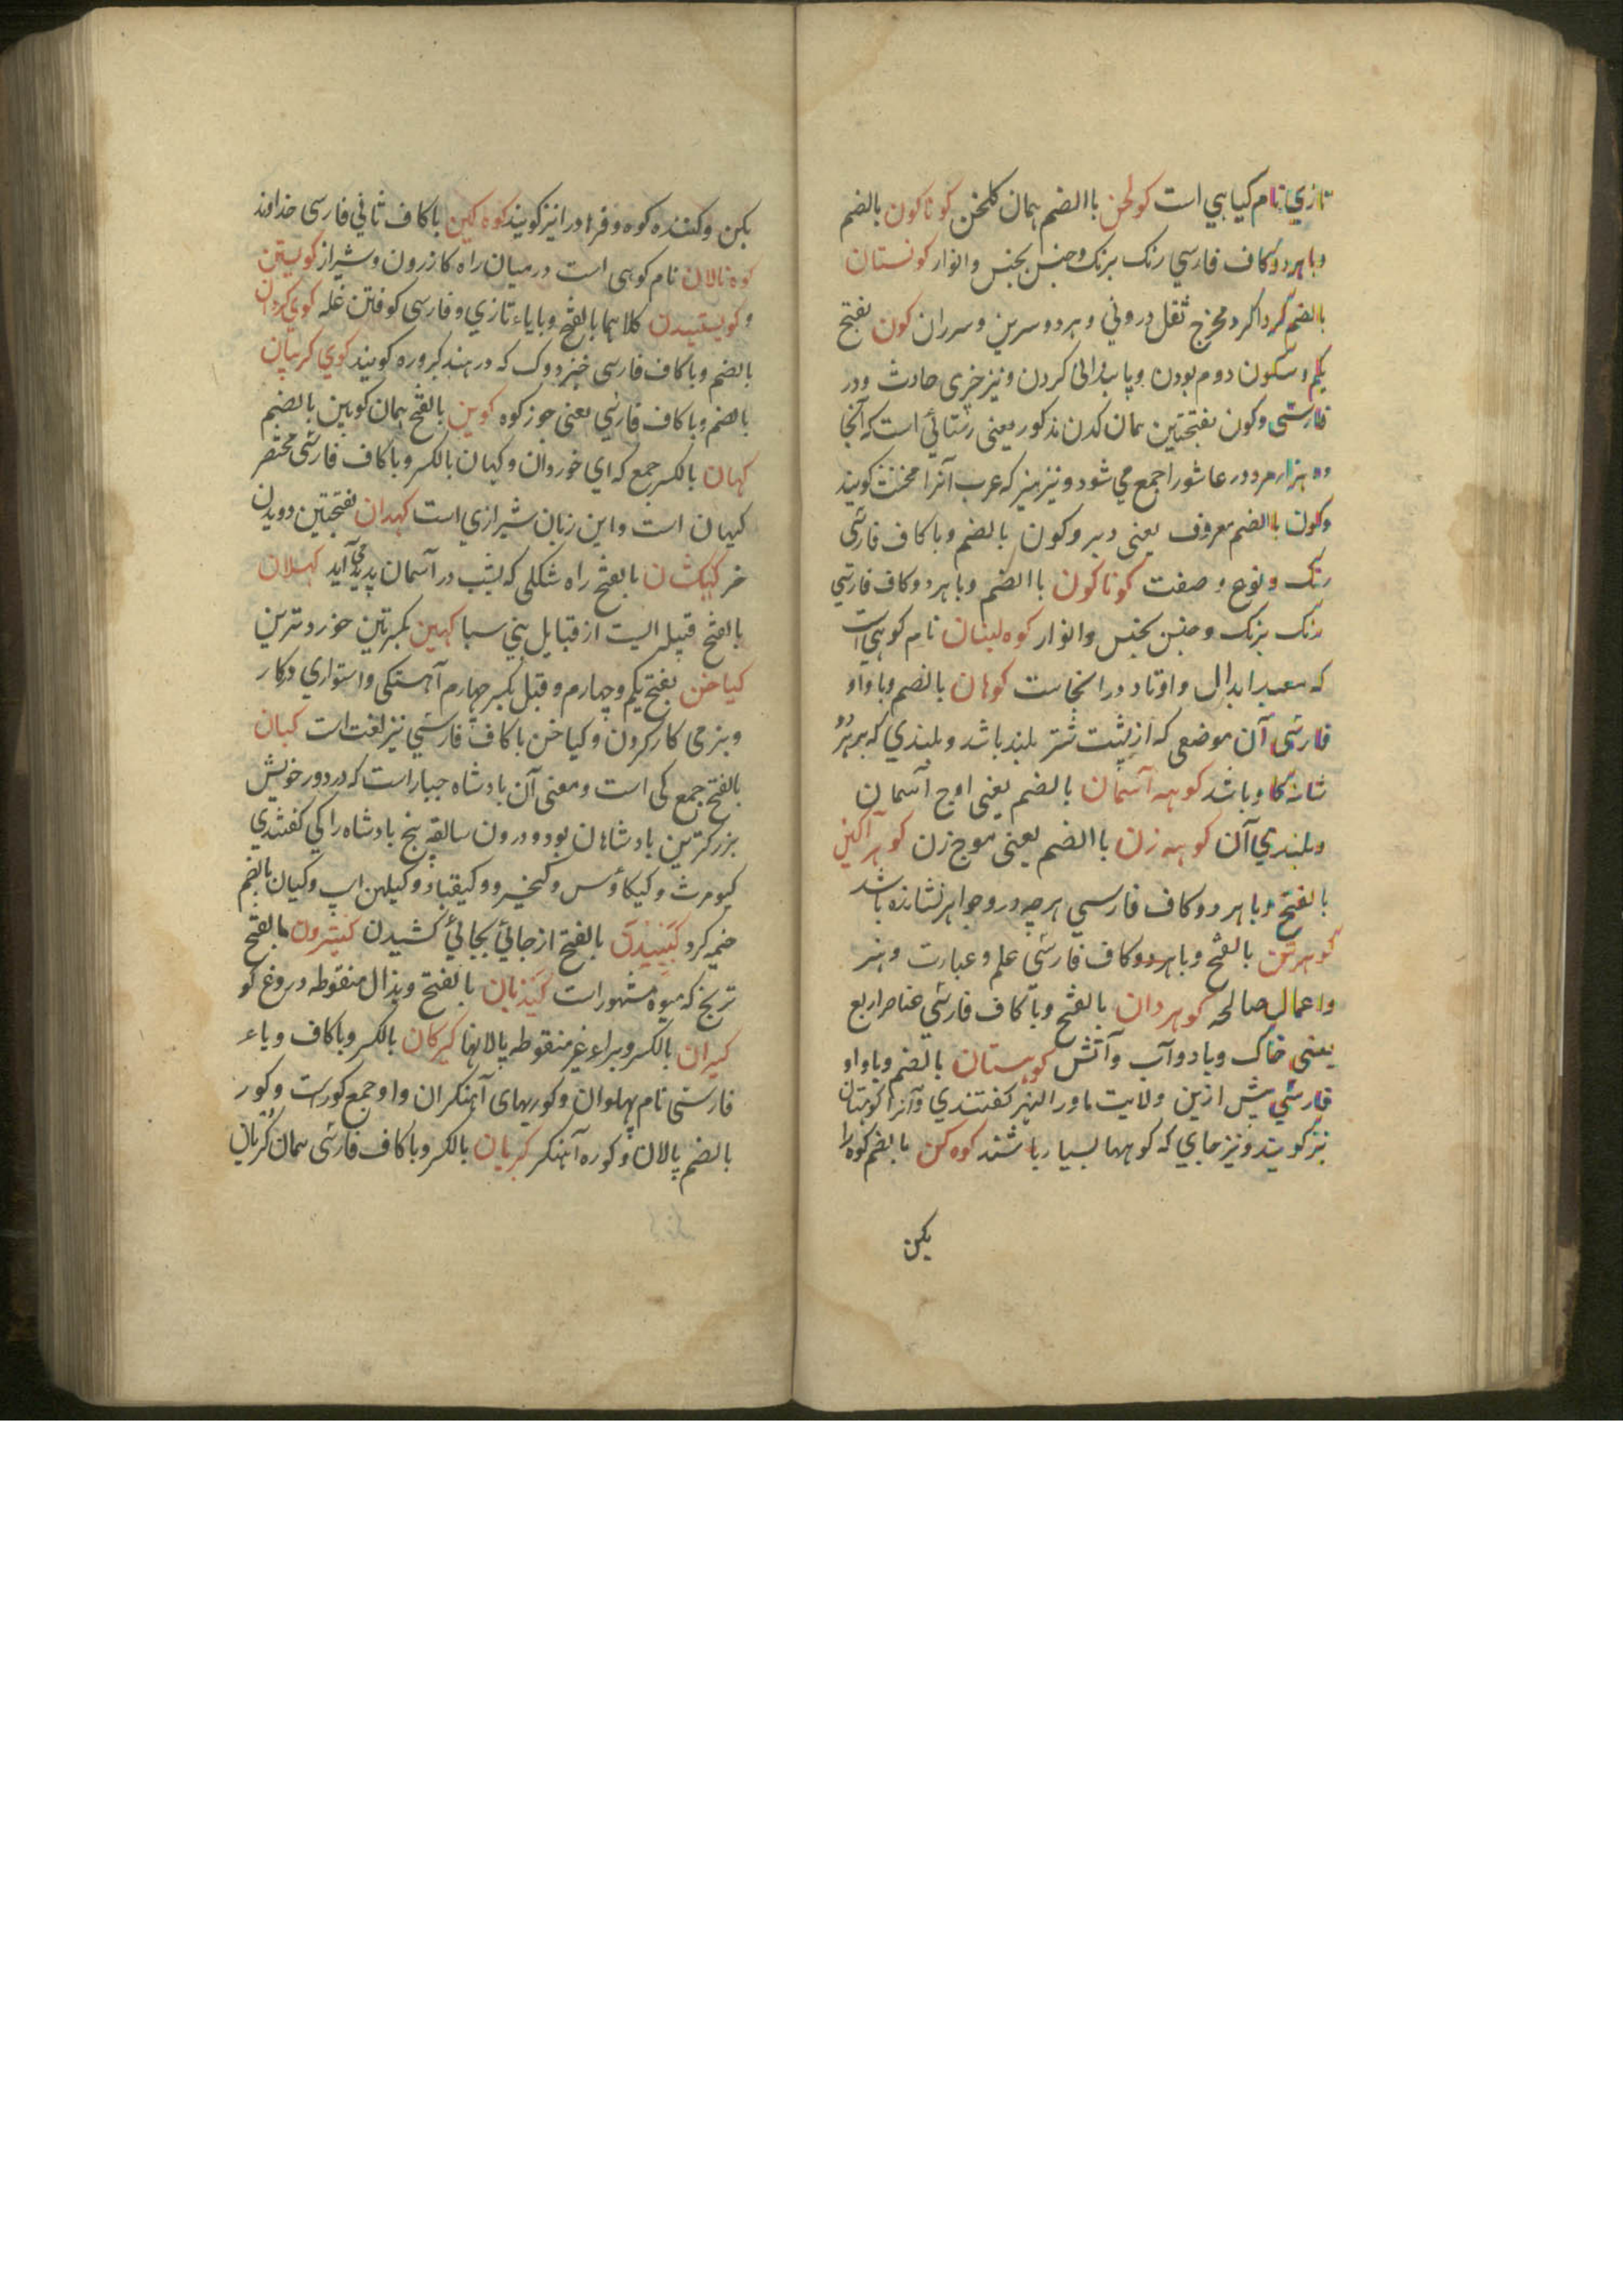 تازي نام كياهي است كولخن باالضم همان كلخن كوناكون بالضم
وباهردوكاف فارسي رنك برنك وجنس بجنس وانوار كونستان
بالضم كرداكرد مخرج ثقل دروني وهردو سرين وسرران كون بفتح
يكم وسكون دوم بودن وپايندانى كردن ونيز خيرى حادث ودر
فارسى وكون بفتحتين همان كدن مذكور معنى رستائي است كه آنجا
ده هزار مرد در عاشورا جمع مي شود ونيز هيز كه عرب آنرا مخنث كويند
وكون باالضم معروف يعنى دبر وكون بالضم وباكاف فارسى
رنك ونوع وصفت كوناكون باالضم وباهردوكاف فارسي
رنك برنك وجنس بجنس وانوار كوه لبنان نام كوهي است
كه معبد ابدال واوتاد درانجاست كوهان بالضم وباواو
فارسى آن موضعى كه از پشت شتر بلند باشد وبلندي كه بر هر دو
شانه كاو باشد كوهه آسمان بالضم يعنى اوج آسمان
وبلندي آن كوهه زن باالضم يعنى موج زن كوهر آكين
بالفتح وباهردوكاف فارسي هرچه درو جواهر نشانده باشد
كوهرتن بالفتح وباهردوكاف فارسي علم وعبارت وهنر
واعمال صالحه كوهردان بالفتح وباكاف فارسي عناصر اربع
يعنى خاك وباد وآب وآتش كوهستان بالضم وباواو
فارسي پيش ازين ولايت ماورالنهر كفتندي وآنرا كوهستان
نيز كويند ونيز جاي كه كوهها بسيار باشند كوه كن بالضم كوه را
بكن
بكن وكننده كوه وفرهاد را نيز كويند كوه كين باكاف ثاني فارسى خداوند
كوه نالان نام كوهى است درميان راه كازرون وشيراز كويستن
وكويستيدن كلاهما بالفتح وباياء تازي وفارسى كوفتن غله كوي كردان
بالضم وباكاف فارسى خبزدوك كه در هند كبروره كويند كوي كريبان
بالضم وباكاف فارسي يعنى جوز كوه كوين بالفتح همان كوبين بالضم
كهان بالكسر جمع كه اي خوردان وكهان بالكسر وباكاف فارسى مختصر
كيهان است واين زبان شيرازي است كهدان بفتحتين دويدن
خر كهكشان بالفتح راه شكلى كه بشب در آسمان پديد مى آيد كهلان
بالفتح قبيله ايست از قبايل بني سبا كهين بكسرتين خوردترين
كياخن بفتح يكم وچهارم وقيل بكسر چهارم آهستكى واستواري دركار
وبنرمى كار كردن وكياخن باكاف فارسي نيز لغت است كيان
بالفتح جمع كى است ومعنى آن بادشاه جبار است كه در دور خويش
بزركترين بادشاهان بود ودرون سالفه پنج بادشاه را كي كفتندي
كيومرث وكيكاؤس وكيخسرو وكيقباد وكيلهراسپ وكيان بالضم
خيمه كرد كيبيدن بالفتح از جائي بجائي كشيدن كيترون بالفتح
ترنج كه ميوه مشهور است كيذبان بالفتح وبذال منقوطه دروغ كو
كيران بالكسر وبراء غير منقوطه پالانها كيركان بالكسر وباكاف وياء
فارسى نام پهلوان وكوريهاى آهنكران واو جمع كورت وكور
بالضم پالان وكوره آهنكر كريان بالكسر وباكاف فارسى همان كريان